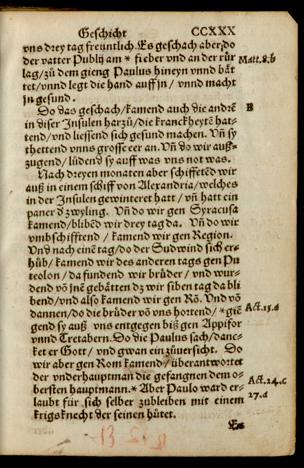 Geschicht CCXXX
vns drey tag freuntlich. Es geschach aber do
der vatter Publij am * fieber vnd an der růr
lag / zů dem gieng Paulus hineyn vnnd bät
tet / vnnd legt die hand auff jn / vnnd macht
jn gesund.
Matt. 8. b
Do das geschach / kamend auch die andrē
in diser Insulen harzů / die kranckheytē hat-
tend / vnd liessend sich gesund machen. Vn̄ sy
thettend vnns grosse eer an. Vn̄ do wir auß-
zugend / lůdend sy auff was vns not was.
B
Nach dreyen monaten aber schiffetēd wir
auß in einem schiff von Alexandria / welches
in der Insulen gewinteret hatt / vn̄ hatt ein
paner d̄ zwyling. Vn̄ do wir gen Syracusa
kamend / blibēd wir drey tag da. Vn̄ do wir
vmbschifftend / kamend wir gen Region.
Vnd nach einē tag / do der Sudwind sich er-
hůb / kamend wir des anderen tags gen Pu
teolon / da fundend wir brůder / vnd wur-
dend vō jnē gebätten dz wir siben tag da bli
bend / vnd also kamend wir gen Rō. Vnd vō
dannen / do die brůder vō vns hortend / * giē
gend sy auß vns entgegen biß gen Appifor
vnnd Tretabern. Do die Paulus sach / danc-
ket er Gott / vnd gwan ein zůuersicht. Do
wir aber gen Rom kamend / überantwortet
der vnderhauptman die gefangnen dem o-
bersten hauptmann. * Aber Paulo ward er-
laubt für sich selber zubleiben mit einem
krigsknecht der seinen hůtet.
Act. 15. d
Act. 24. c
27. a
Es